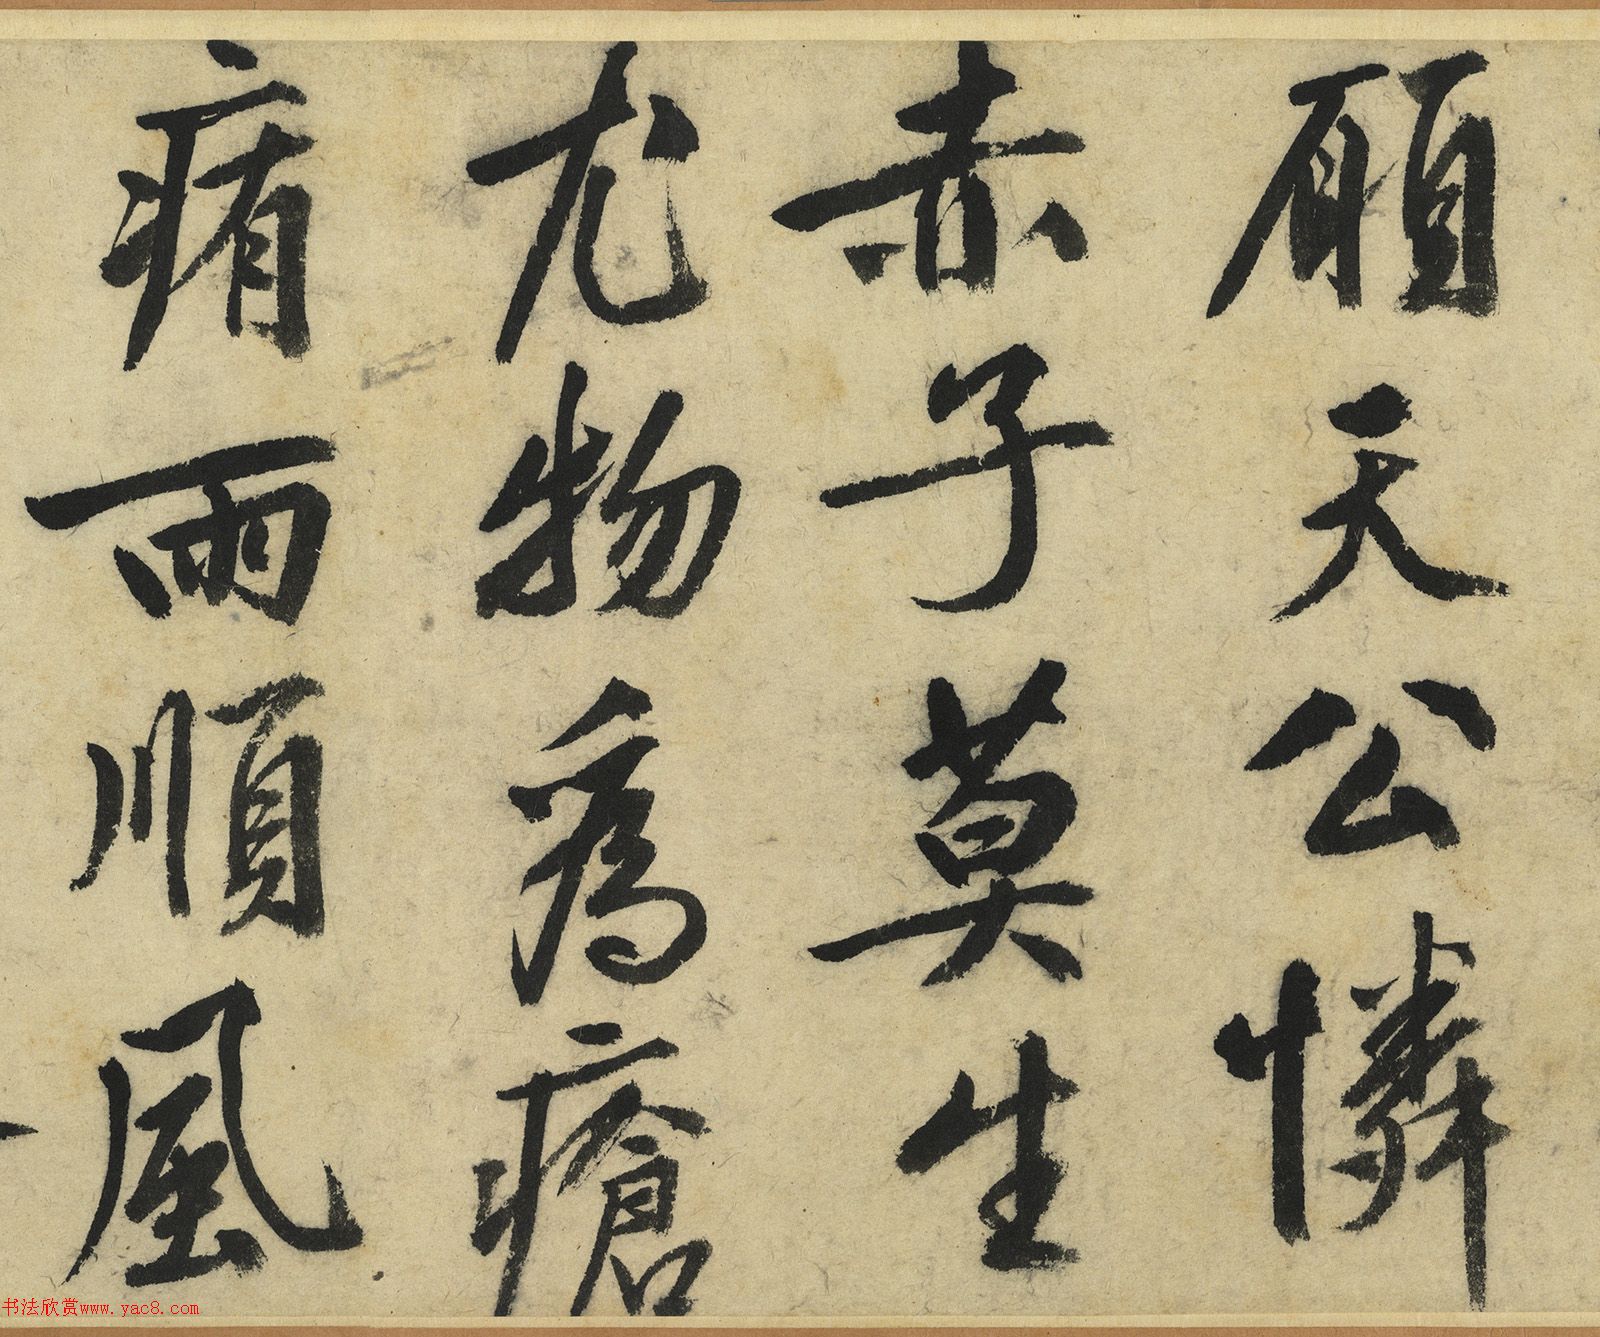 願天公憐
赤子莫生
尤物為瘡
痏雨順風
书法欣赏www.yac8.com